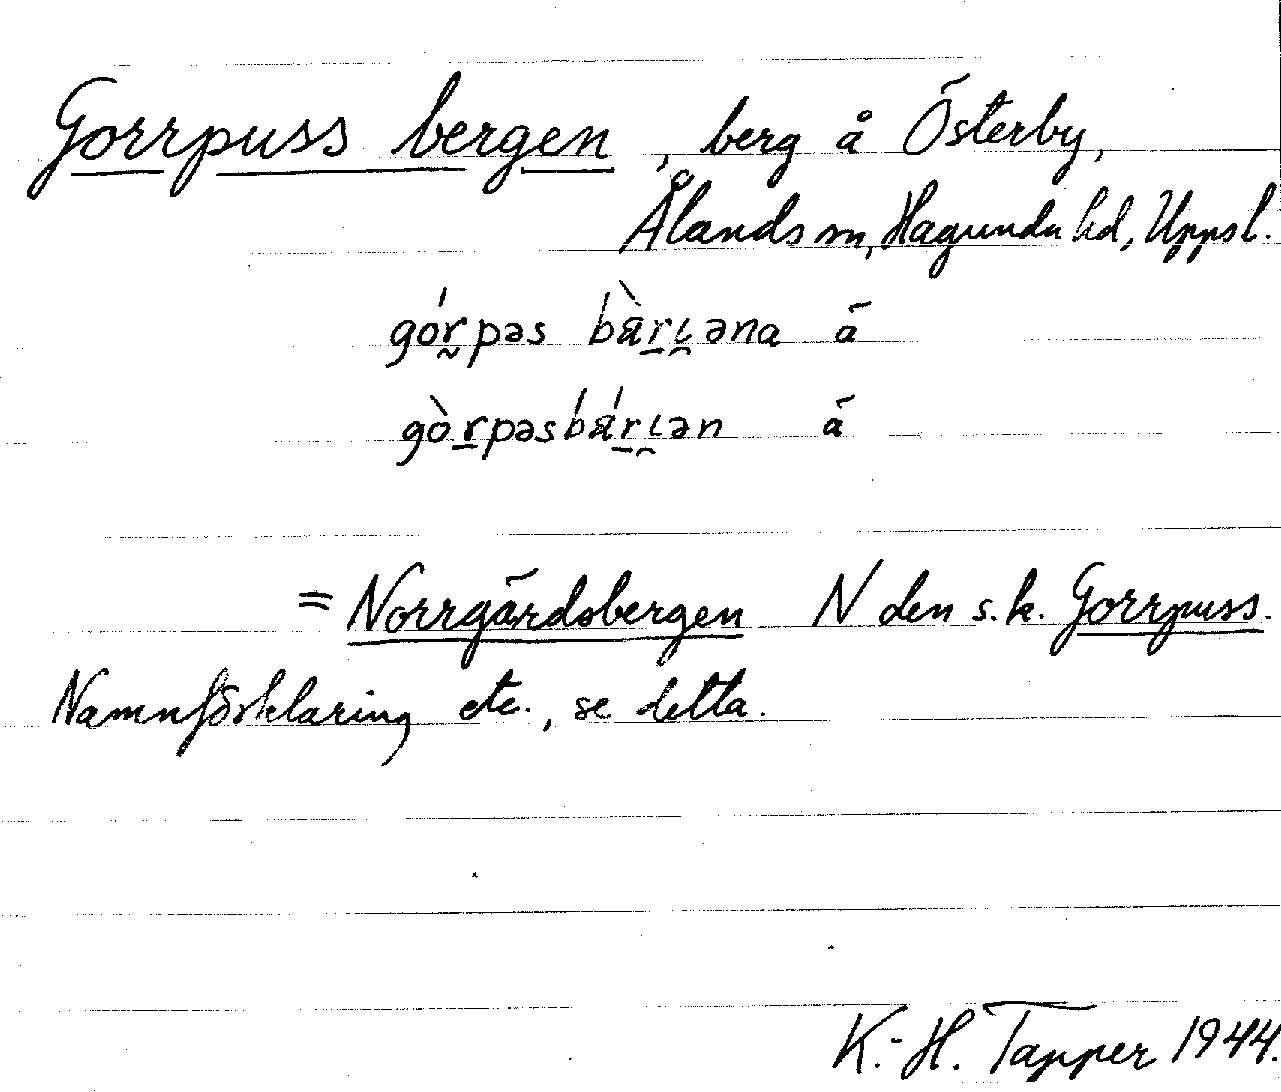 Gorrpuss bergen, berg å Österby,
Ålands sn, Hagunda hd, Uppsl.
górpəs bàrɩəna á
gòrpəsbárɩən á
= Norrgårdsbergen N den s.k. Gorrpuss.
Namnförklaring etc., se detta.
K.-H. Tapper 1944.